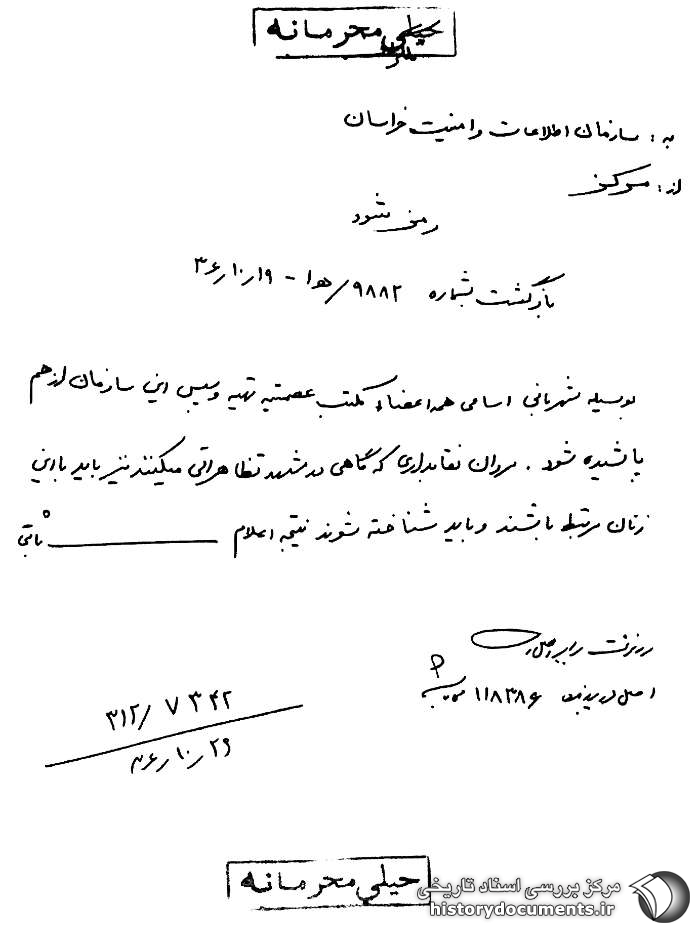 خیلی محرمانه
به: سازمان اطلاعات و امنیت خراسان
از: مرکز
رمز شود
بازگشت بشماره ۹۸۸۲/ﻫ۱ - ۳۶/۱۰/۱۹
بوسیله شهربانی اسامی همه اعضاء مکتب عصمتیه تهیه و سپس این سازمان از هم
پاشیده شود. مردان نقابداری که گاهی در مشهد تظاهراتی میکنند نیز باید با این
زنان مرتبط باشند و باید شناخته شوند نتیجه اعلام
رونوشت برابر اصل
اصل در پرونده ۱۱۸۳۸۶
۳۱۲/۷۳۴۲
۳۶/۱۰/۲۹
خیلی محرمانه
مرکز بررسی اسناد تاریخی
historydocuments.ir